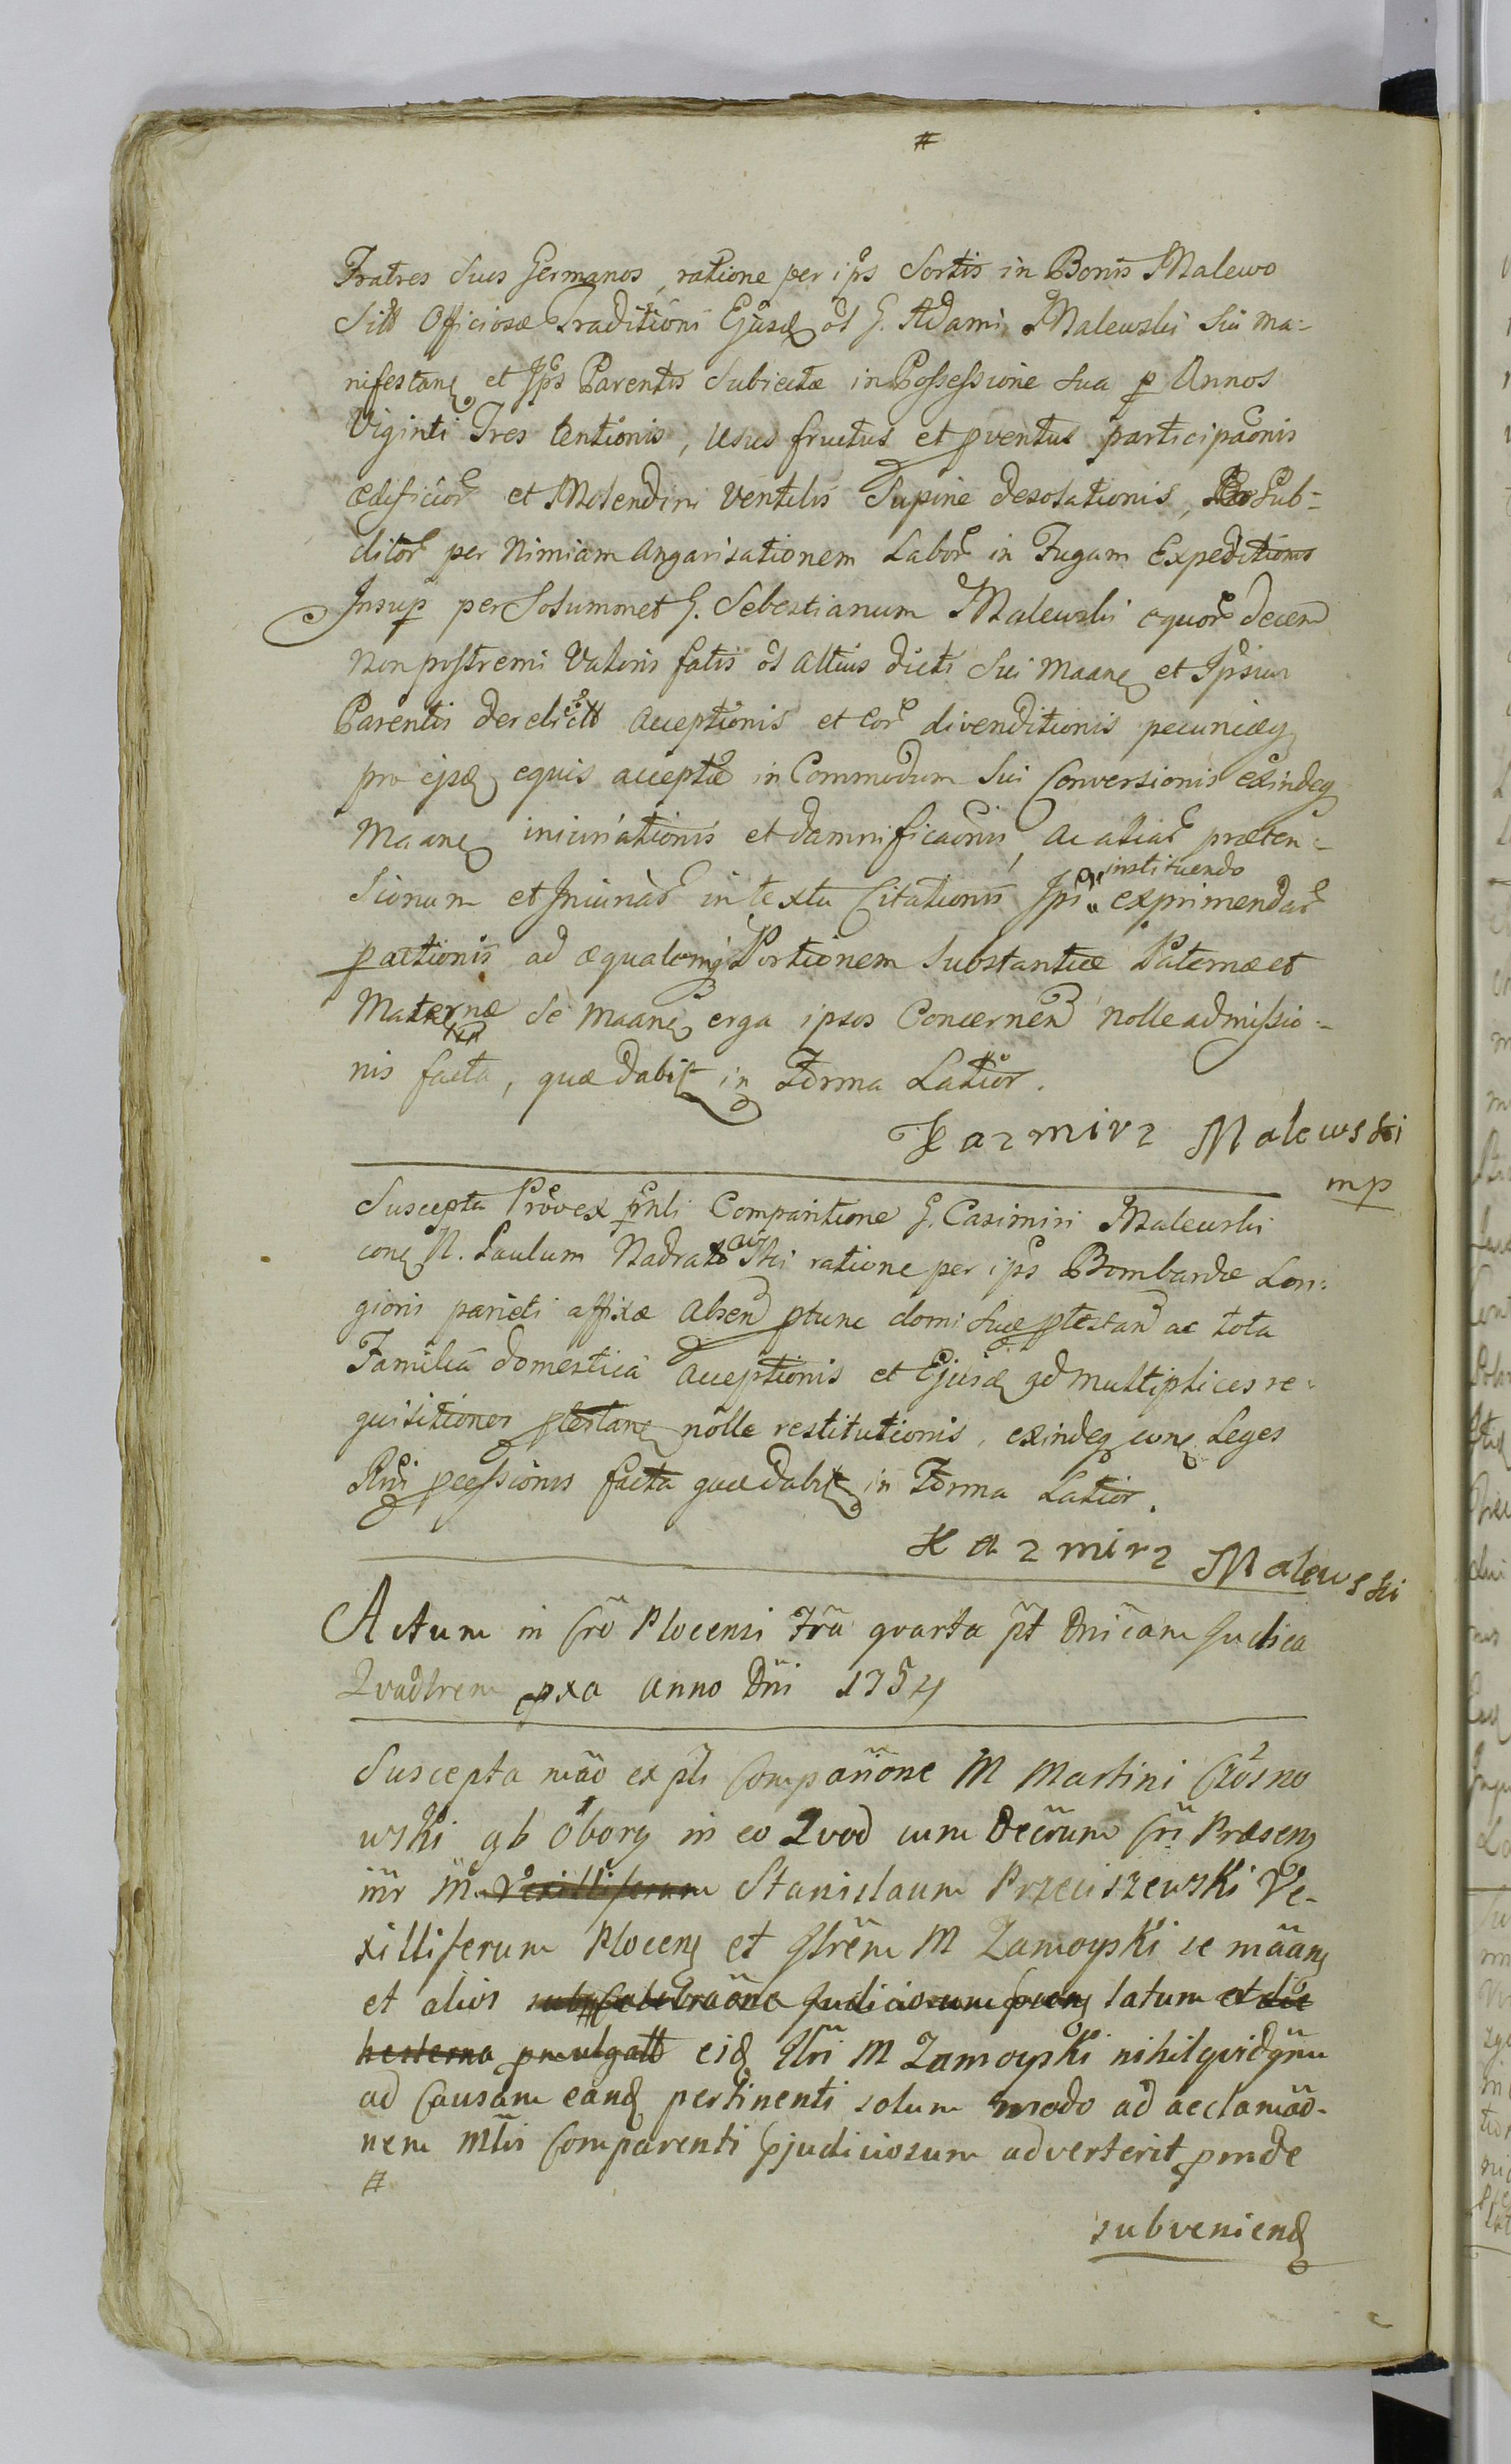 #
Fratres Suos Germanos, ratione per ips Sortis in Bonis Malewo
Sitt Officiosæ Traditioni Ejusd ol G. Adami Malewski Sui ma-
nifestanę et Ips Parentis Subiectæ in Possessione sua p Annos
Viginti Tres tentionis, usus fructus et pventus participaonis
ædificior et Molendini Ventilis Supine desolationis, Sub-
ditor per Nimiam Angarisationem Labor in Fugam Expeditionis
Insup per Solummet G. Sebestianum Malewski equor decem
Non postremi Valoris fatis ol altius dicti Sui Maanę et Ipsius
Parentis derelictt acceptionis et eor divenditionis pecuniæq
pro ejsd equis acceptæ in Commodum Sui Conversionis exindeq
Maanę iniuriationis et damnificaonis, ac aliar præten-
sionum et Iniuriar in textu Citationis Ips instituendo exprimendar
pactionis ad æqualemq Portionem Substantiæ Paternæ et
Maternæ Se Maanę erga ipsos Concernen nolle admissio-
nis facta, quæ dabit in Forma Latior.
Kazmirz Malewski
mp
Suscepta Provex pnli Comparitione G. Casimiri Malewski
conę N. Paulum Nadratowski ratione per ips Bombardæ Lon-
gioris parieti affixæ absen ptunc domi suæ ptestan ac tota
Familia domestica acceptionis et Ejusd ad multiplices re-
quisitiones ptestanę nolle restitutionis, exindeq conę Leges
Rni pcessionis facta quæ dabit in Forma Latior.
Kazmirz Malewski
Actum in Cro Plocensi Fra quarta pt Dnicam Judica
Quadlrem pxa Anno Dni 1754
Suscepta mao ex pli Comparione M Martini Crosno
wski ab obory in eo Quod cum Decrum Cri Præsenę
inr M. Vexilliferum Stanislaum Przeciszewski Ve-
xilliferum Plocenę et Glrem M Zamoyski se maanę
et alios sub Celebraone Judiciorum prænę latum et die
hesterna pmulgatt eid Glri M Zamoyski nihil quidquam
ad Causam eand pertinenti solum modo ad acclamao-
nem Mtis Comparenti pjudiciosum adverterit pinde
#
subveniend